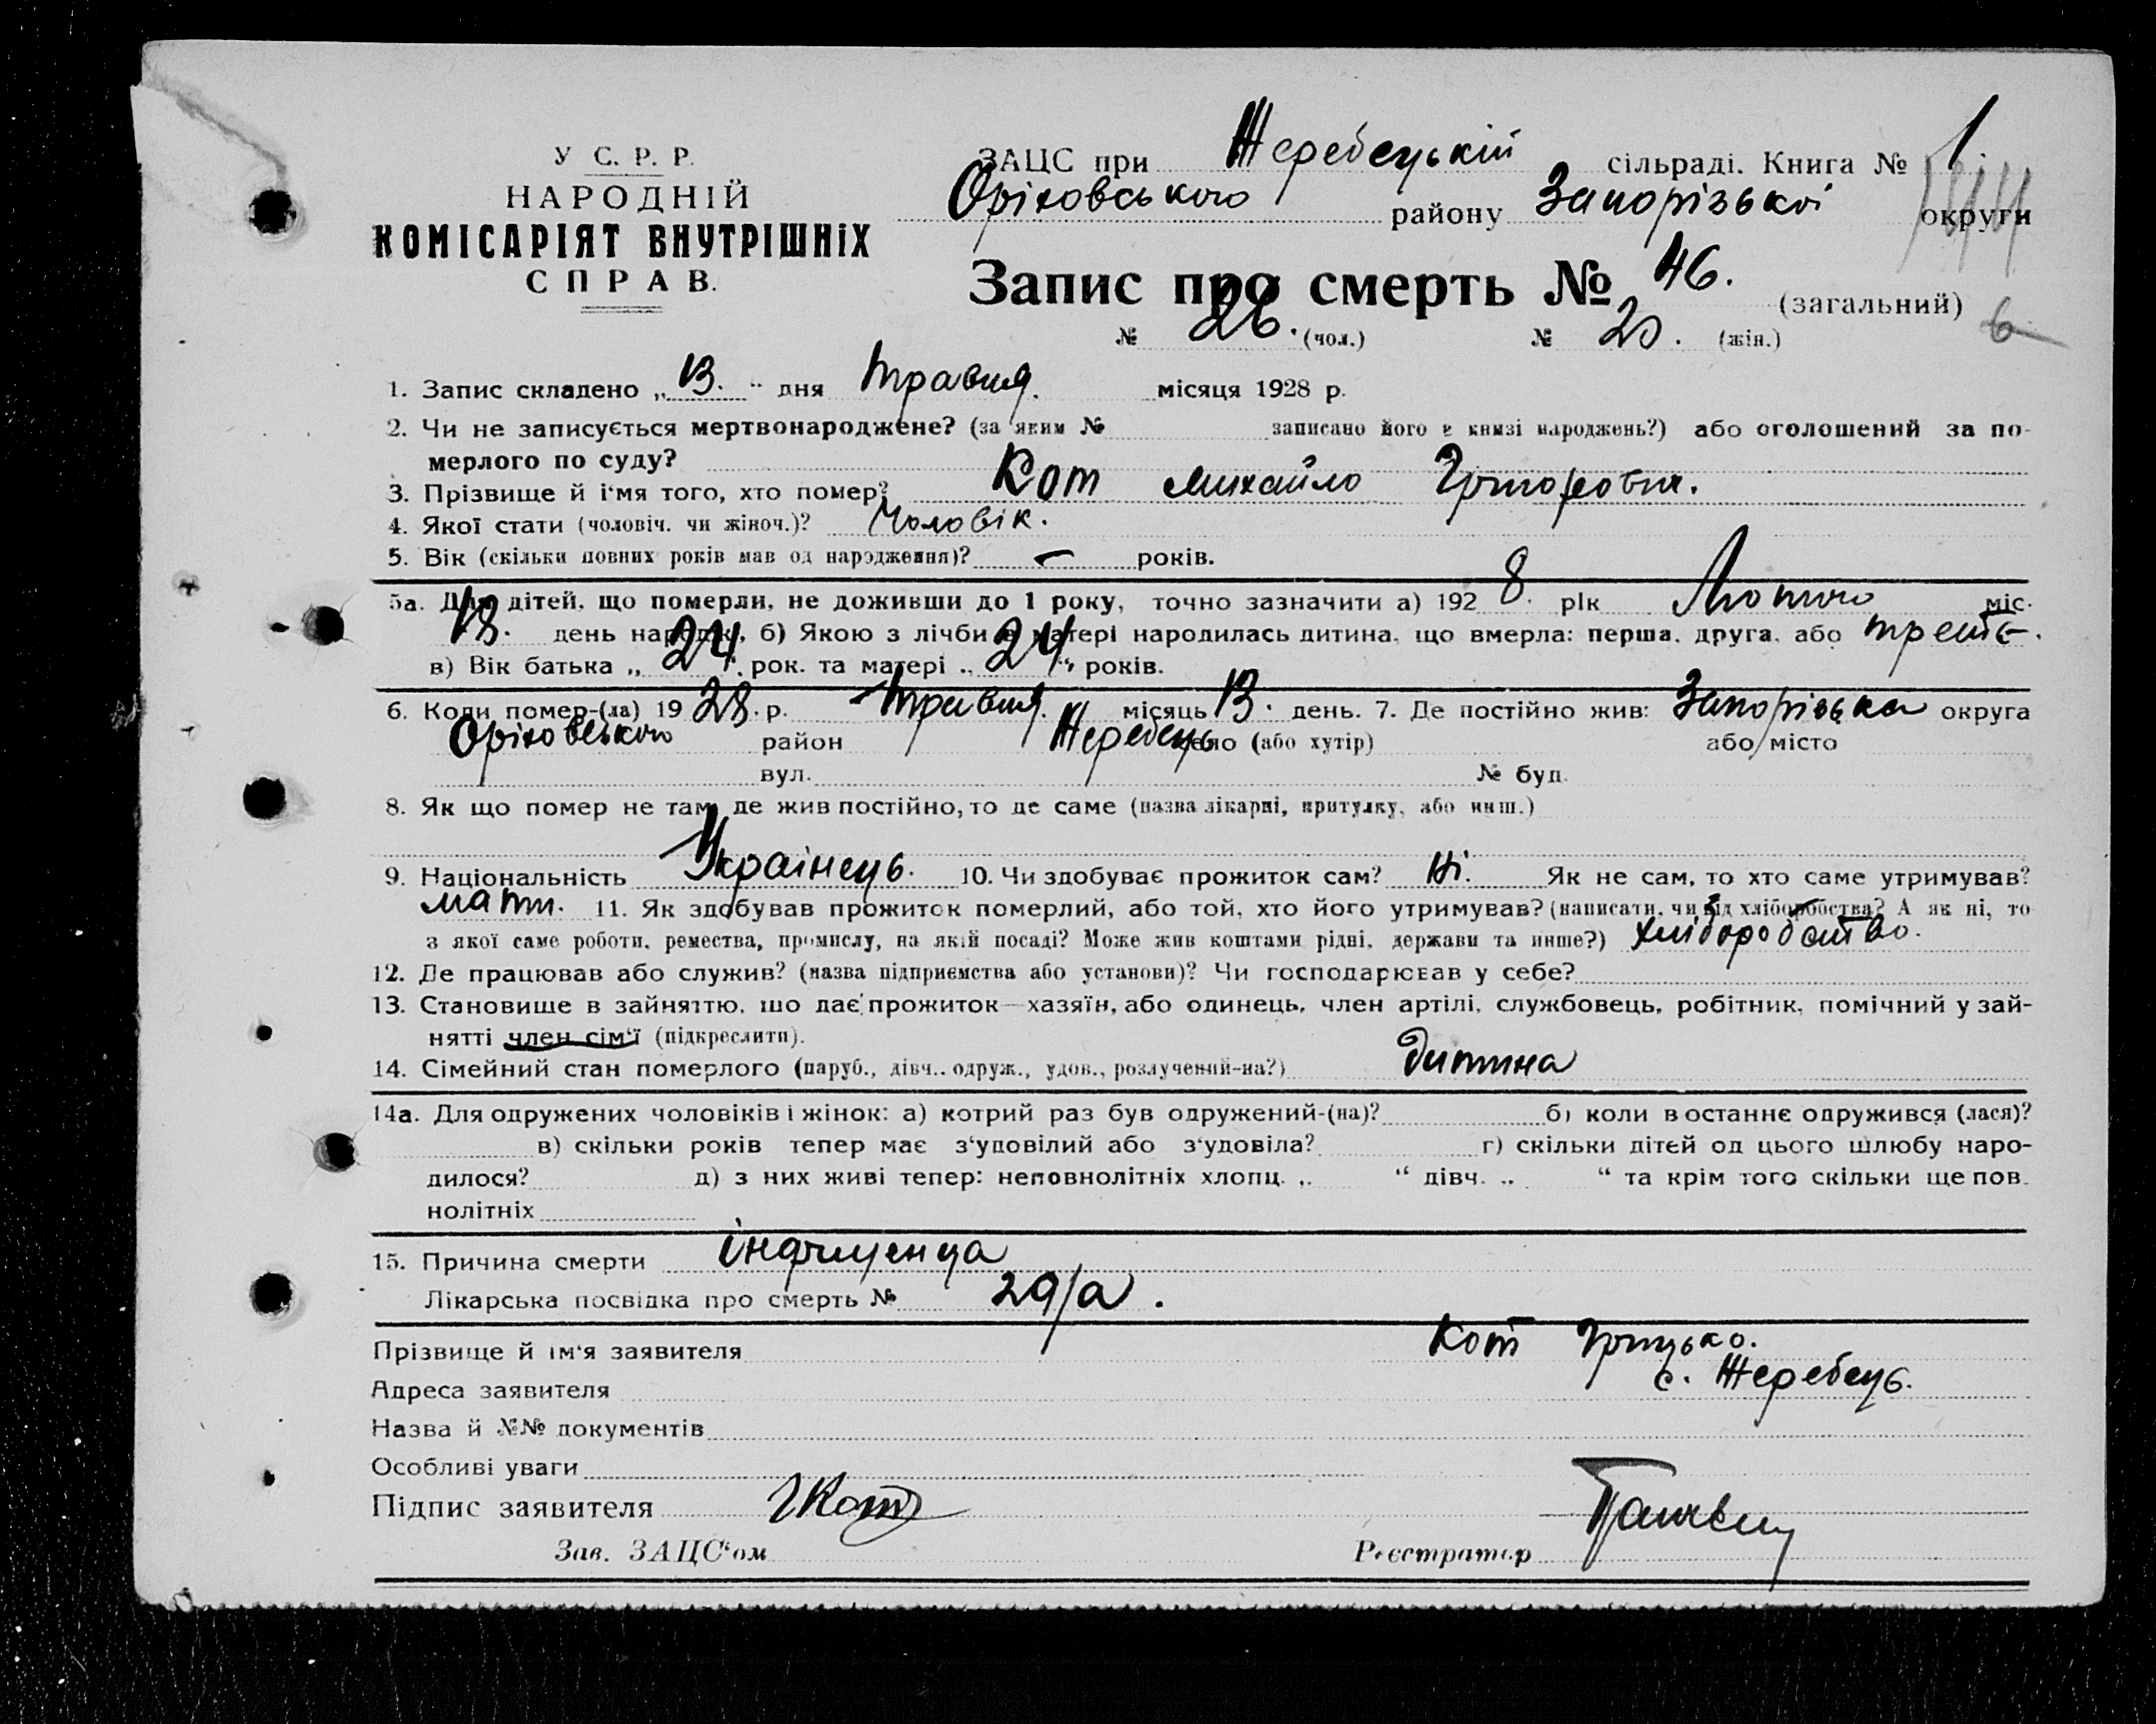 У С. Р. Р.
НАРОДНІЙ
КОМІСАРІЯТ ВНУТРІШНІХ
СПРАВ.
ЗАЦС при Жеребецькій сільраді. Книга № 1.
Оріховського району Запорізької округи
Запис про смерть № 46. (загальний) 6
№ 26. (чол.) № 20. (жін.)
1. Запис складено „13." дня травня. місяця 1928 р.
2. Чи не записується мертвонароджене? (за яким № записано його в книзі народжень?) або оголошений за по-
мерлого по суду?
3. Прізвище й і'мя того, хто помер? Кот Михайло Григорович.
4. Якої стати (чоловіч. чи жіноч.)? Чоловік.
5. Вік (скільки повних років мав од народження)? – років.
5а. Для дітей, що померли, не доживши до 1 року, точно зазначити а) 1928. рік Лютого міс.
18. день народж., б) Якою з лічби в матері народилась дитина, що вмерла: перша, друга, або третє.
в) Вік батька „24" рок. та матері „24" років.
6. Коли помер-(ла) 1928. р. травня. місяць 13. день. 7. Де постійно жив: Запорізька округа
Оріховського район Жеребець село (або хутір) або місто
вул. № буд.
8. Як що помер не там, де жив постійно, то де саме (назва лікарні, притулку, або инш.)
9. Національність Українець. 10. Чи здобуває прожиток сам? Ні. Як не сам, то хто саме утримував?
мати. 11. Як здобував прожиток померлий, або той, хто його утримував? (написати, чи від хліборобства? А як ні, то
з якої саме роботи, ремества, промислу, на якій посаді? Може жив коштами рідні, держави та инше?) хліборобство.
12. Де працював або служив? (назва підприємства або установи)? Чи господарював у себе?
13. Становище в зайняттю, що дає прожиток—хазяїн, або одинець, член артілі, службовець, робітник, помічний у зай-
нятті член сім'ї (підкреслити).
14. Сімейний стан померлого (паруб., дівч.. одруж., удов., розлучений-на?) дитина
14а. Для одружених чоловіків і жінок: а) котрий раз був одружений-(на)? б) коли востаннє одружився (лася)?
в) скільки років тепер має з'удовілий або з'удовіла? г) скільки дітей од цього шлюбу наро-
дилося? д) з них живі тепер: неповнолітніх хлопц. „ " дівч. „ " та крім того скільки ще пов-
нолітніх
15. Причина смерти
Лікарська посвідка про смерть № 29/а.
Прізвище й ім'я заявителя Кот Грицько.
Адреса заявителя с. Жеребець.
Назва й №№ документів
Особливі уваги
Підпис заявителя ГКот
Зав. ЗАЦС'ом Реєстратор